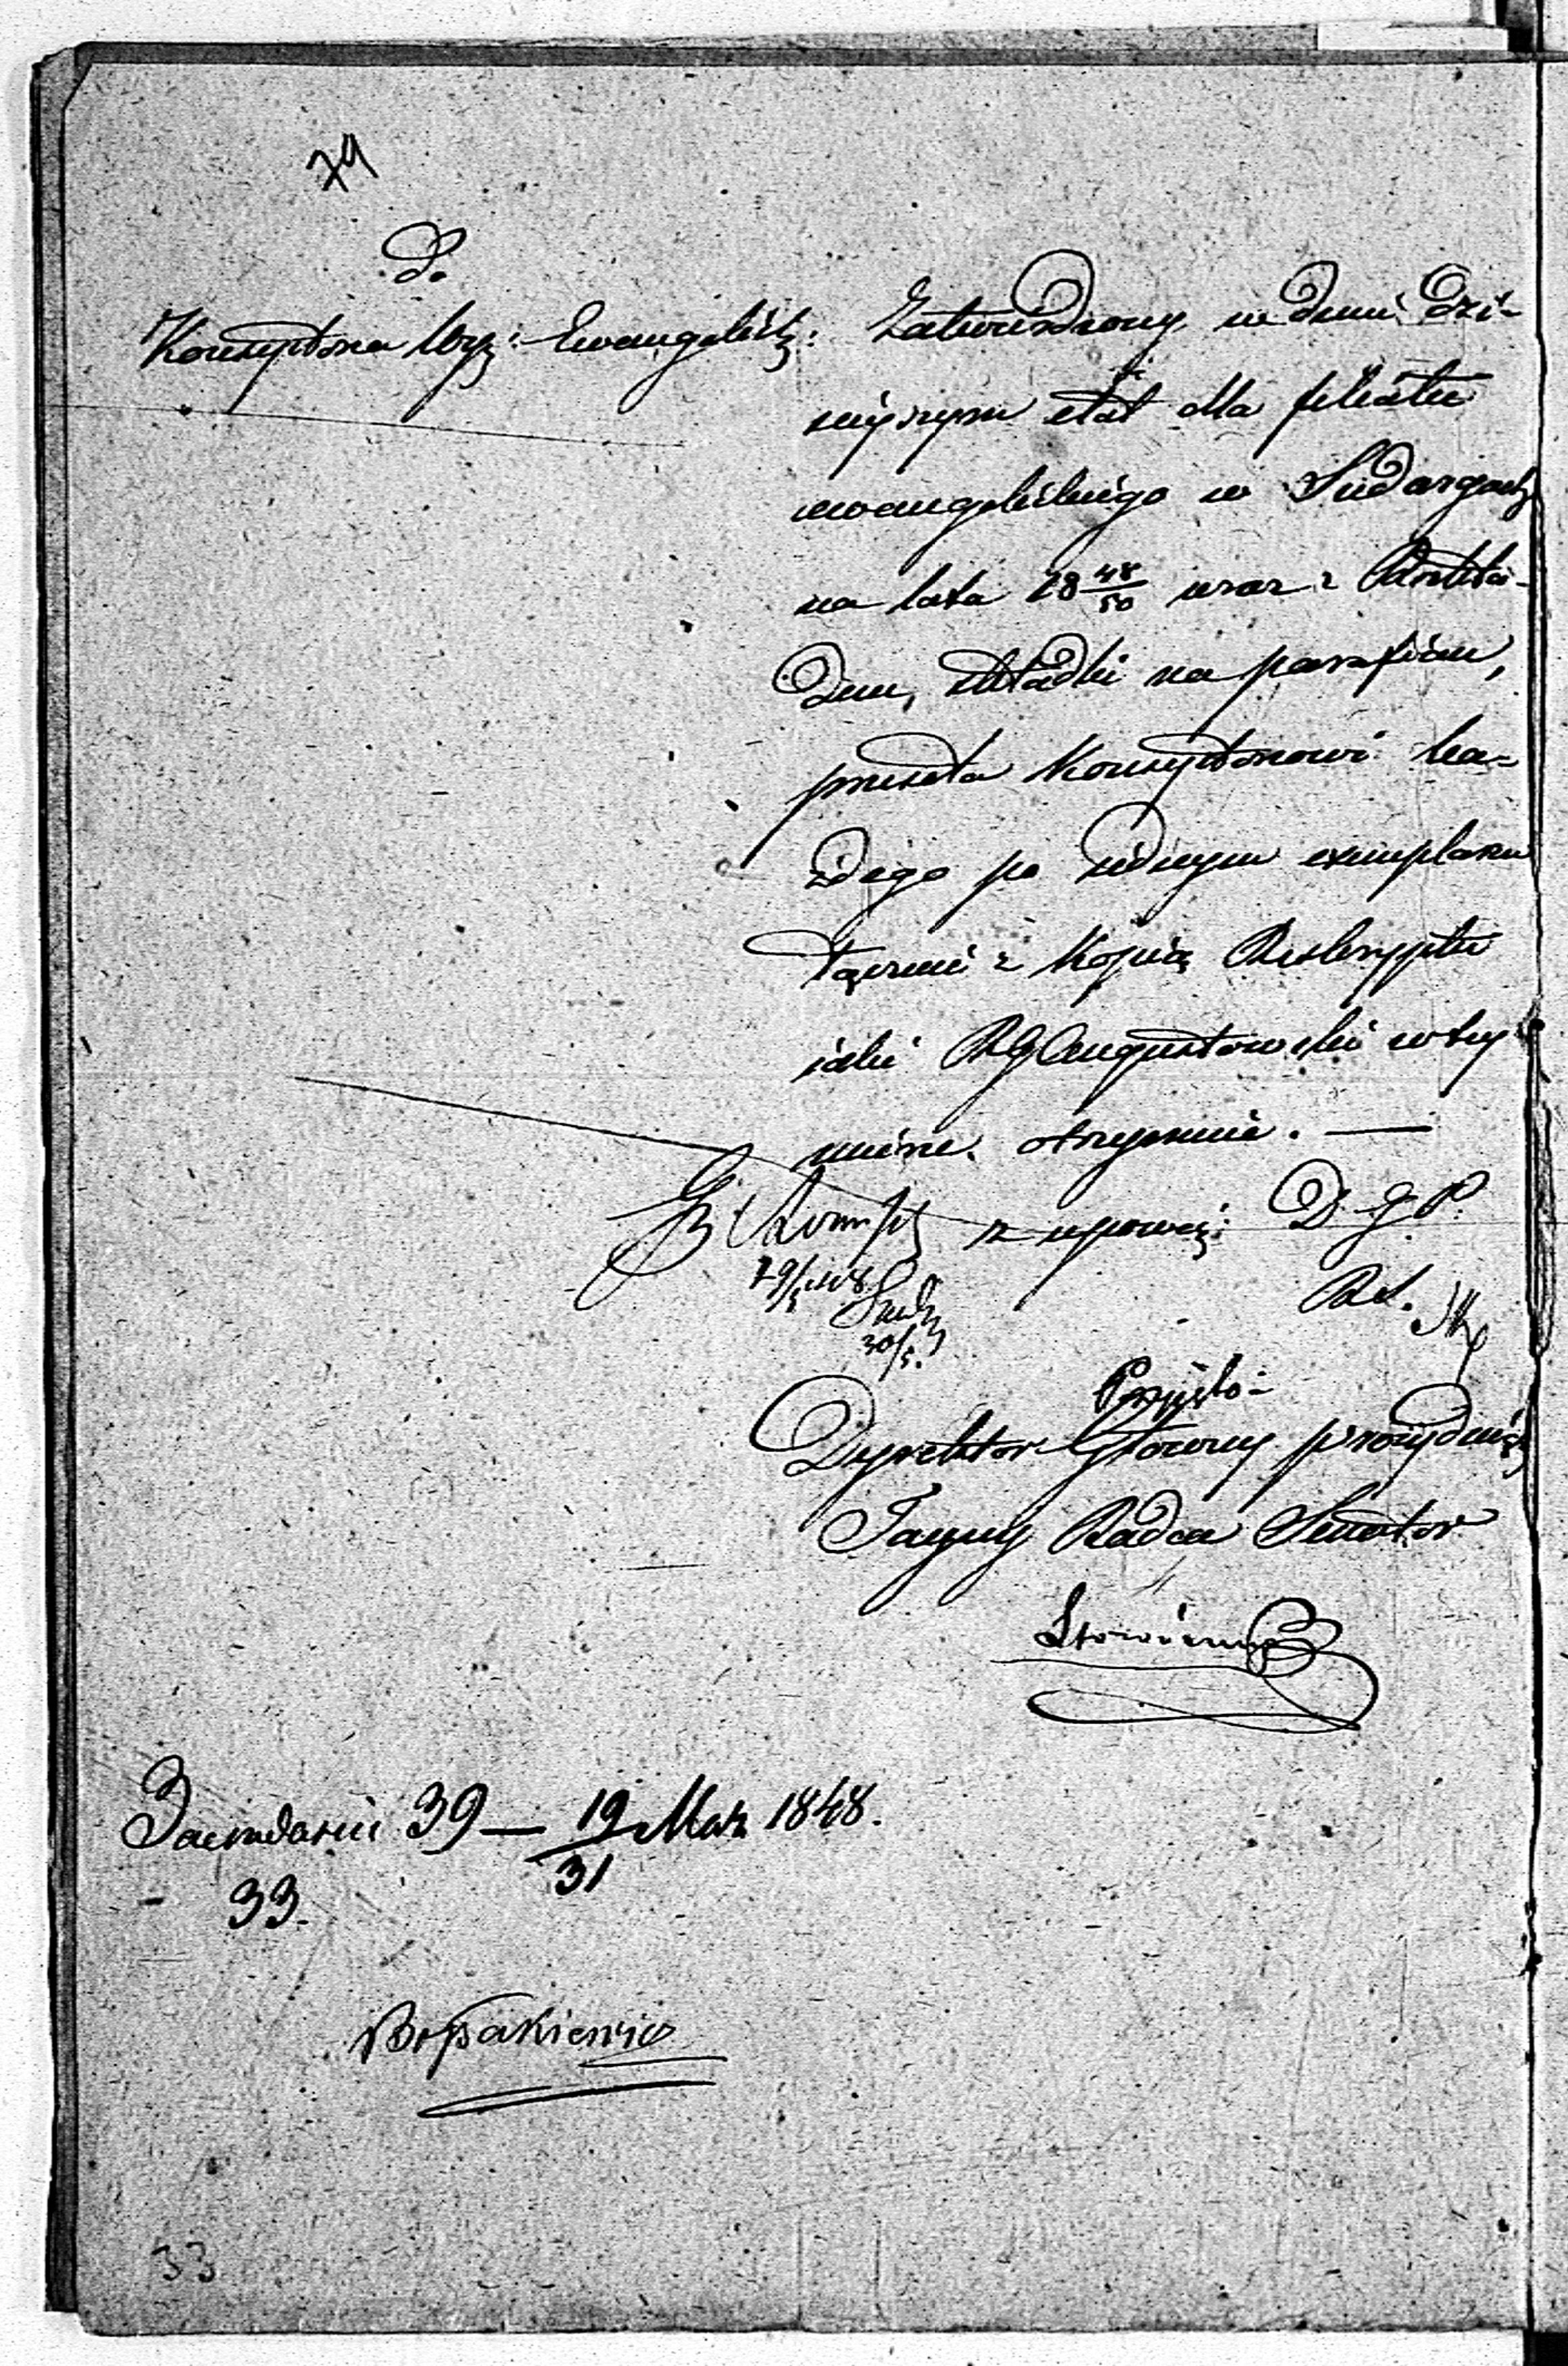 79
Do
Konsystorza Wyz: Ewangelick:
Zatwierdzony w dniu dzi-
sieyszym etat dla filiału
ewangelickiego w Sudargach
na lata 18 48/50 wraz z Rozkła-
dem, składki na parafian,
przesyła Konsystorzowi ka-
żdego po jednym exemplarzu
łącznie z Kopią Reskryptu
jaki RGAugustowski w tey
mierze otrzymuie. —
z upoważ: D. G. P.
29/5 48
30/5.
Przyjęto
Dyrektor Główny prezyduiący
Tayny Radca Senator
Zasiadanie 39 — 19/31 Maja 1848.
- 33.
33